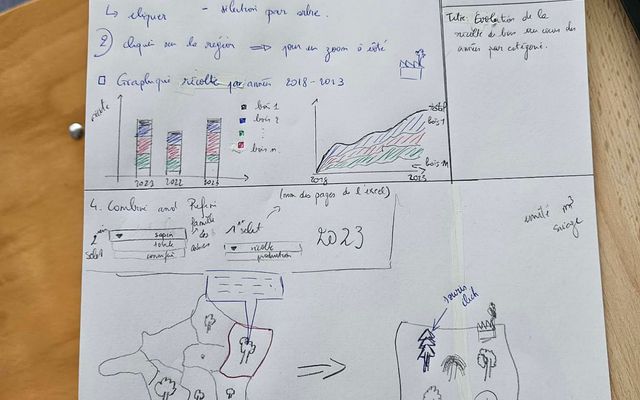 ↳ cliquer - sélection par arbre.
② cliqué sur la région ⟹ pour un zoom à côté
Graphique récolte par années 2018-2023
Titre: Évolution de la
récolte de bois au cours des
années par catégorie.
bois 1
bois 2
bois n
2021 2022
total
bois 1
bois n
2018
4. Combine and Refine
(nom des pages de l'excel)
famille
select
sapin
1er select
récolte
production
2023
unité m³
sciage
souris
click